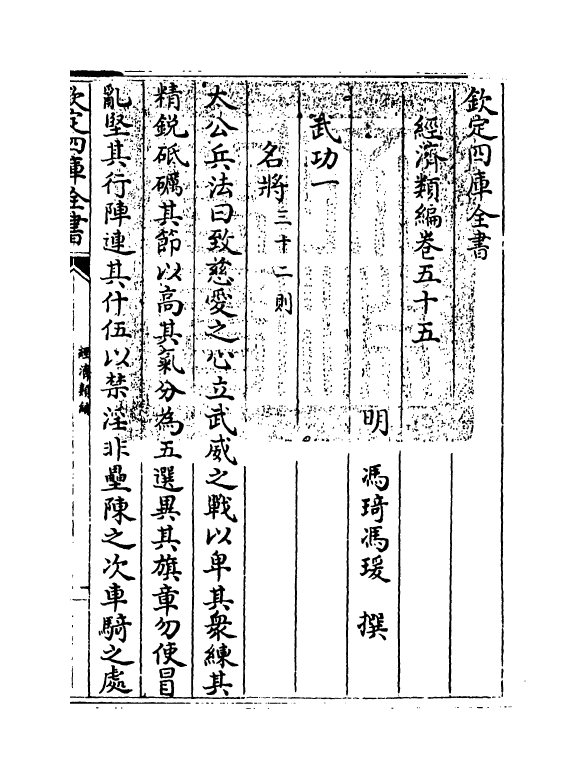 欽定四庫全書
經濟類編卷五十五
明 馮琦馮瑗 撰
武功一
名將三十二則
太公兵法曰致慈愛之心立武威之戰以卑其衆練其
精銳砥礪其節以高其氣分為五選異其旗章勿使冒
亂堅其行陣連其什伍以禁淫非壘陳之次車騎之處
欽定四庫全書
經濟類編
一